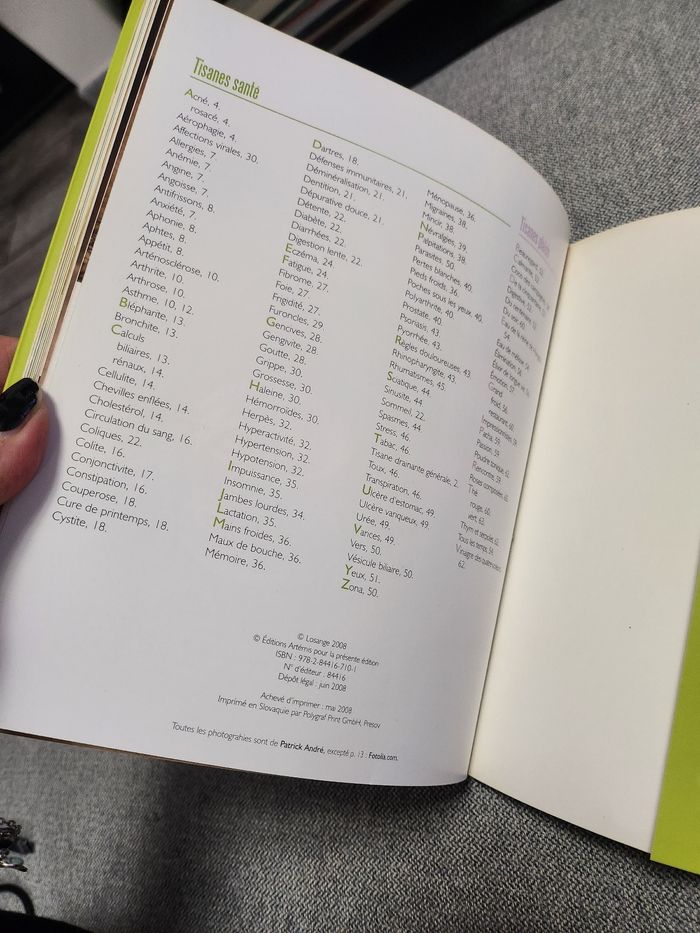 Tisanes santé
Acné, 4.
rosacé, 4.
Aérophagie, 4.
Affections virales, 30.
Allergies, 7.
Anémie, 7.
Angine, 7.
Angoisse, 7.
Antifrissons, 8.
Anxiété, 7.
Aphonie, 8.
Aphtes, 8.
Appétit, 8.
Arténosclérose, 10.
Arthrite, 10.
Arthrose, 10.
Asthme, 10, 12.
Blépharite, 13.
Bronchite, 13.
Calculs
biliaires, 13.
rénaux, 14.
Cellulite, 14.
Chevilles enflées, 14.
Cholestérol, 14.
Circulation du sang, 16.
Coliques, 22.
Colite, 16.
Conjonctivite, 17.
Constipation, 16.
Couperose, 18.
Cure de printemps, 18.
Cystite, 18.
Dartres, 18.
Défenses immunitaires, 21.
Déminéralisation, 21.
Dentition, 21.
Dépurative douce, 21.
Détente, 22.
Diabète, 22.
Diarrhées, 22.
Digestion lente, 22.
Eczéma, 24.
Fatigue, 24.
Fibrome, 27.
Foie, 27.
Frigidité, 27.
Furoncles, 29.
Gencives, 28.
Gengivite, 28.
Goutte, 28.
Grippe, 30.
Grossesse, 30.
Haleine, 30.
Hémorroides, 30.
Herpès, 32.
Hyperactivité, 32.
Hypertension, 32.
Hypotension, 32.
Impuissance, 35.
Insomnie, 35.
Jambes lourdes, 34.
Lactation, 35.
Mains froides, 36.
Maux de bouche, 36.
Mémoire, 36.
Ménopause, 36.
Migraine, 38.
Mincir, 38.
Névralgies, 39.
Palpitations, 38.
Parasites, 50.
Pertes blanches, 40.
Pieds froids, 36.
Poches sous les yeux, 40.
Polyarthrite, 40.
Prostate, 40.
Psoriasis, 43.
Pyorrhée, 43.
Règles douloureuses, 43.
Rhinopharyngite, 43.
Rhumatismes, 45.
Sciatique, 44.
Sinusite, 44.
Sommeil, 22.
Spasmes, 44.
Stress, 46.
Tabac, 46.
Tisane drainante générale, 2.
Toux, 46.
Transpiration, 46.
Ulcère d'estomac, 49.
Ulcère variqueux, 49.
Urée, 49.
Varices, 49.
Vers, 50.
Vésicule biliaire, 50.
Yeux, 51.
Zona, 50.
Tisanes plaisir
Calmante,
Digestive,
Du verger,
Eau de mélisse, 54.
Émotion, 57.
Grand
froid, 56.
restaurant, 60.
Passion, 59.
Poudre tonique, 62.
Thé
rouge, 60.
vert, 63.
Tous les temps, 54.
Vinaigre des quatre voleurs,
62.
© Losange 2008
© Éditions Artémis pour la présente édition
ISBN : 978-2-84416-710-1
N° d'éditeur : 84416
Dépôt légal : juin 2008
Achevé d'imprimer : mai 2008
Imprimé en Slovaquie par Polygraf Print GmbH, Presov
Toutes les photograhies sont de Patrick André, excepté p. 13 : Fotolia.com.